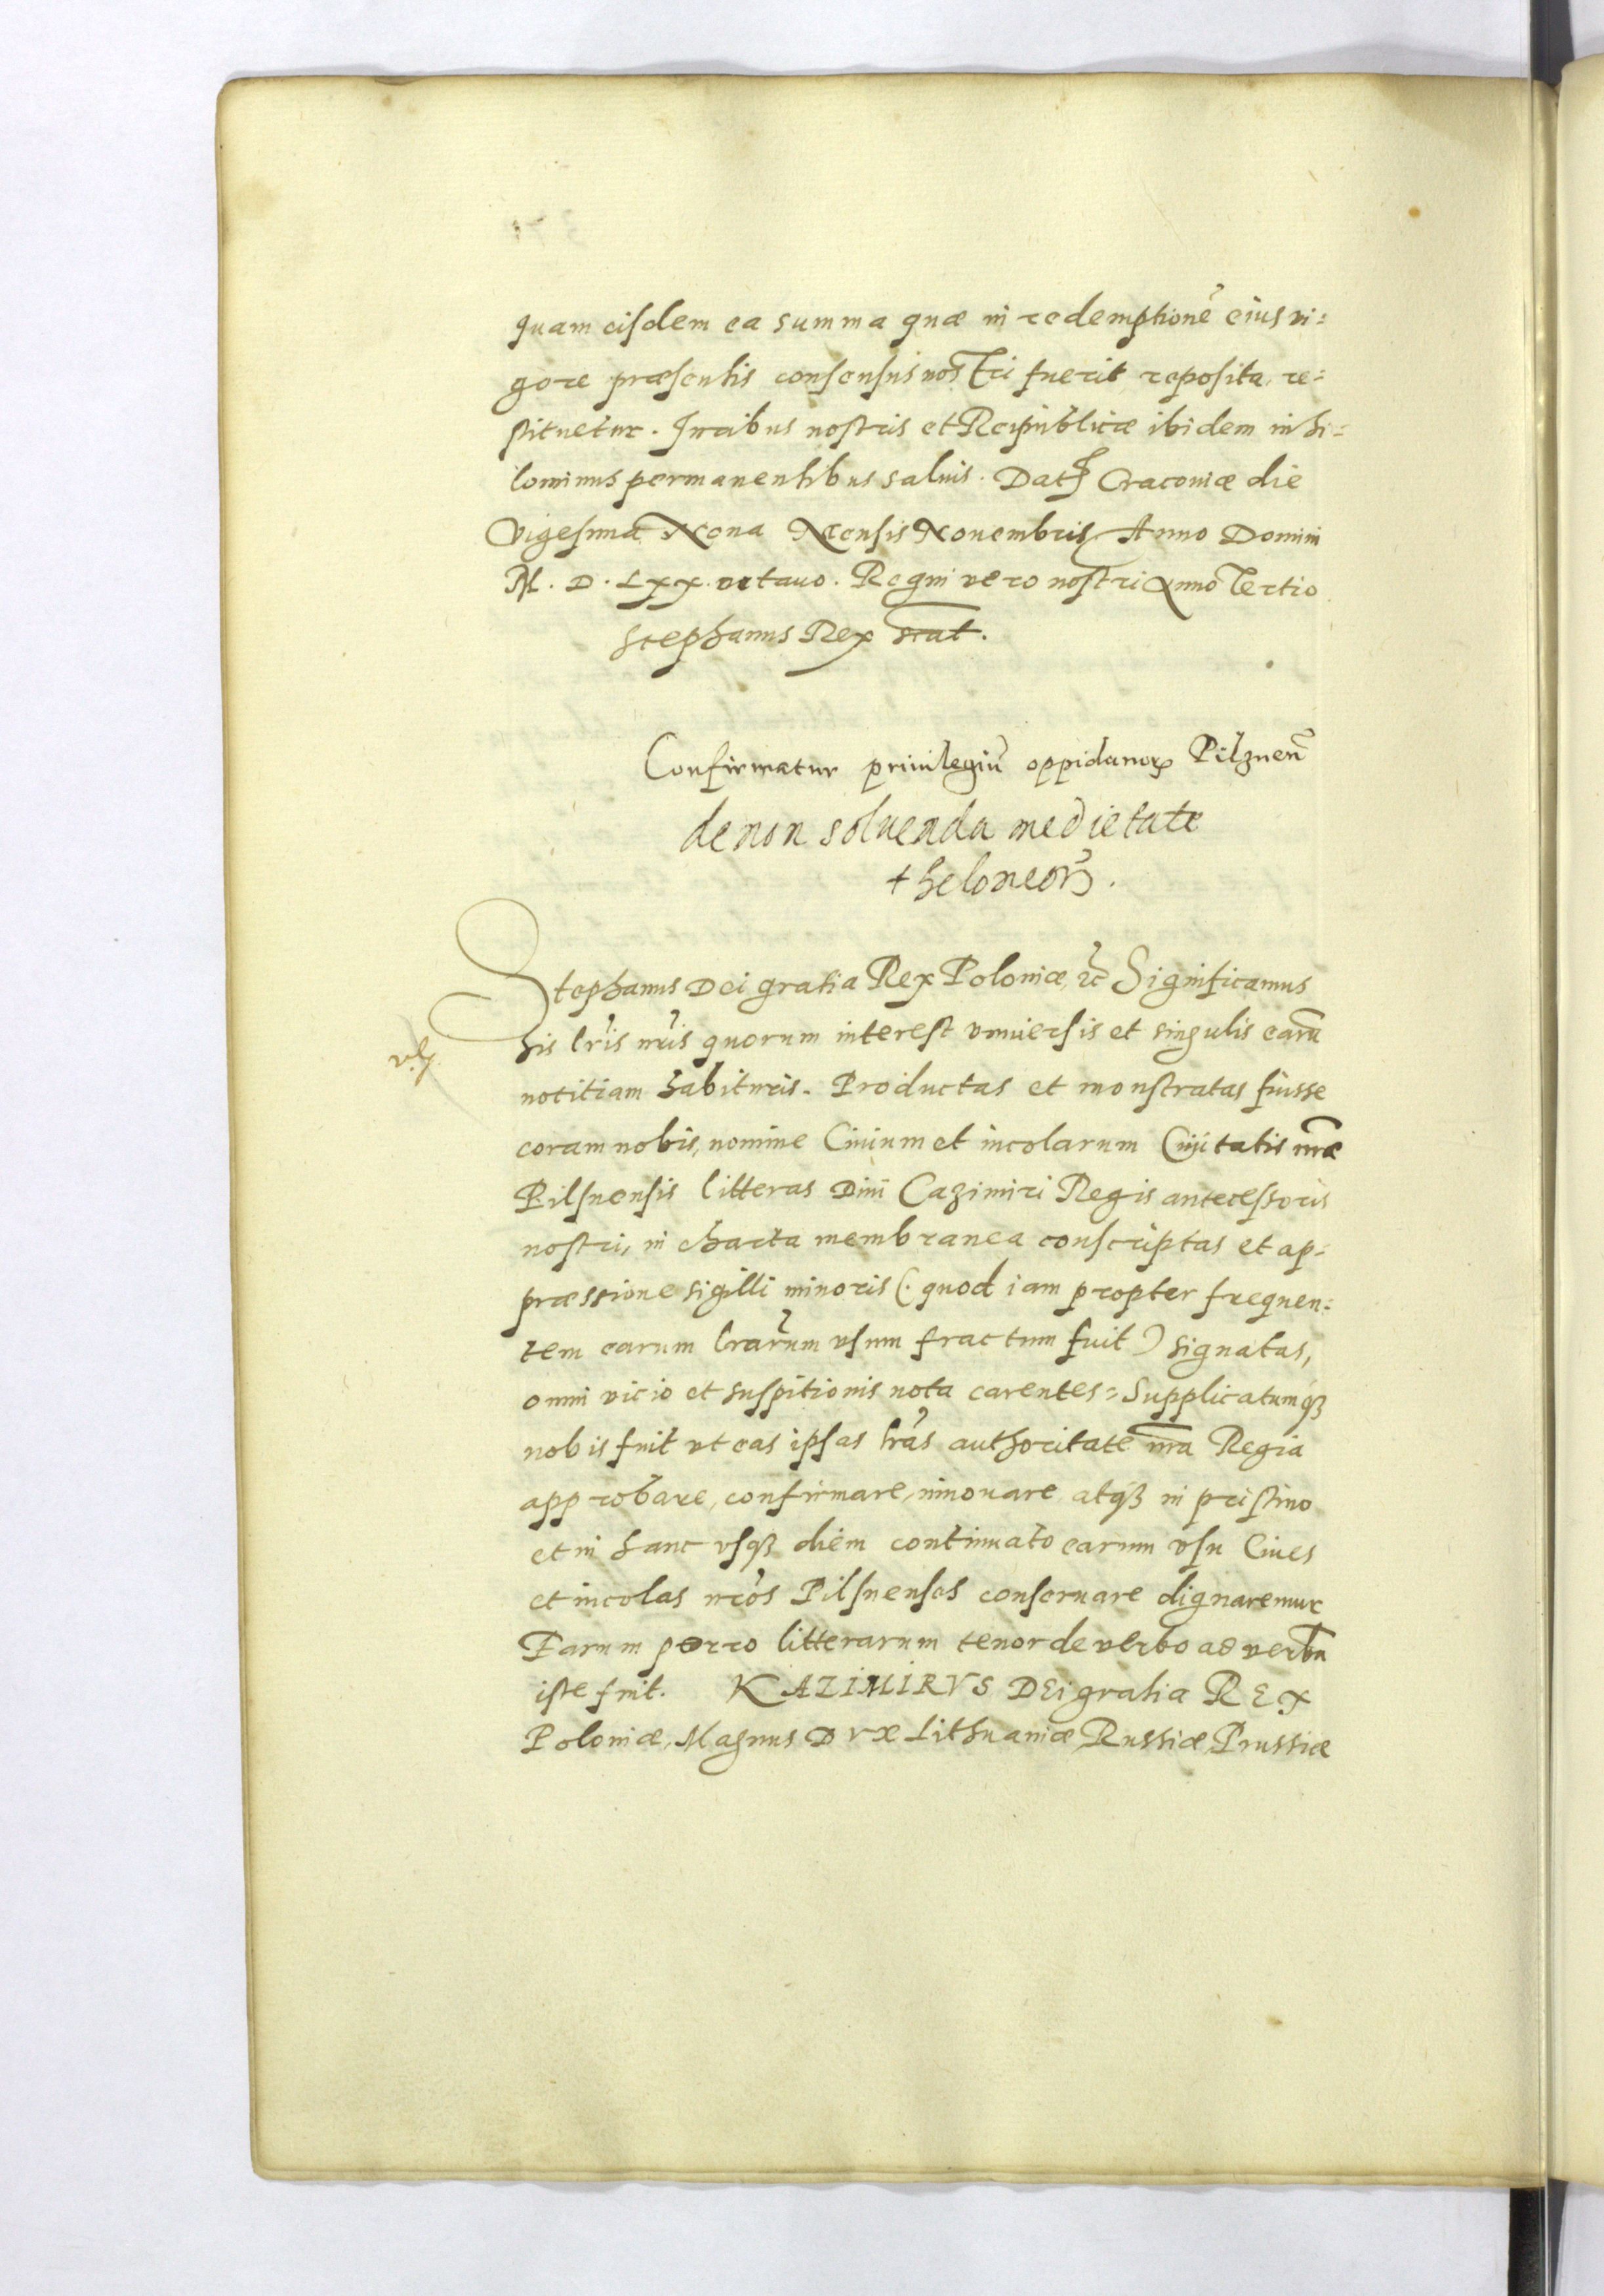 quam eisdem ea summa quæ in redemptionē eius vi=
gore præsentis consensus nostri fuerit reposita, re=
stituetur. Iuribus nostris et Reipublicæ ibidem nihi=
lominus permanentibus saluis. Dat. Cracoviæ die
Vigesima Nona Mensis Nouembris Anno Domini
M. D. Lxx. octauo. Regni vero nostri Anno Tertio
Stephanus Rex scat.
Confirmatur priuilegiū oppidanoꝝ Pilznen̄
de non soluenda medietate
theloneorū.
Stephanus Dei gratia Rex Poloniæ, ꝛc Significamus
his lr̄is nr̄is quorum interest vniuersis et singulis earū
notitiam habituris. Productas et monstratas fuisse
coram nobis, nomine Ciuium et incolarum Ciuitatis nr̄æ
Pilsnensis litteras Diui Cazimiri Regis antecessoris
nostri, in charta membranea conscriptas et ap=
præssione sigilli minoris (. quod iam propter frequen=
tem earum lr̄arum vsum fractum fuit) signatas,
omni vicio et suspitionis nota carentes= Supplicatumqꝫ
nobis fuit vt eas ipsas lr̄as authoritate nr̄a Regia
approbare, confirmare, innouare atqꝫ in pristino
et in hanc vsqꝫ diem continuato earum vsu Ciues
et incolas nr̄os Pilsnenses conseruare dignaremur
Earum porro litterarum tenor de verbo ad verbū
iste fuit. KAZIMIRVS DEi gratia REX
Poloniæ, Magnus DVx Lithuaniæ, Russiæ, Prussiæ